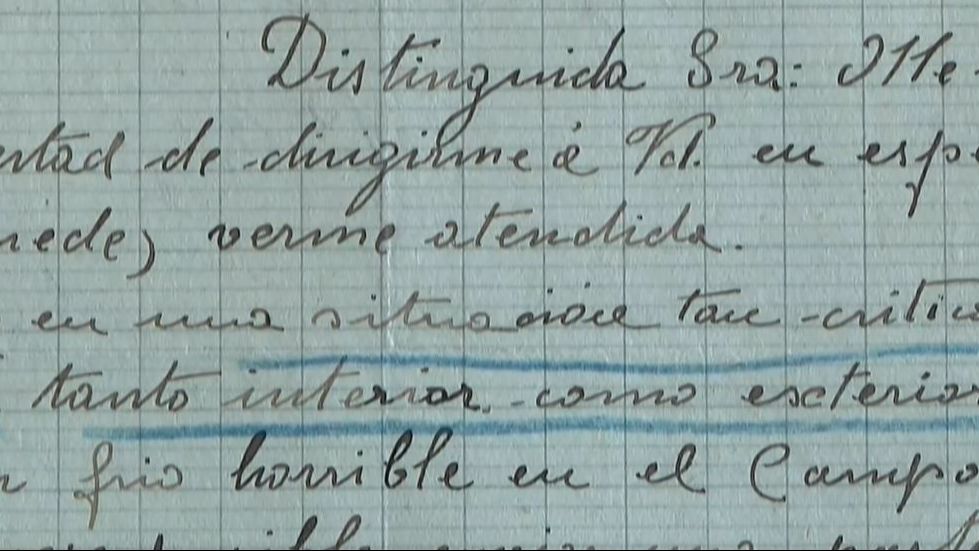 Distinguida Sra: Me
ertad de dirigirme á Vd. en esp
uede) verme atendida.
en una situación tan critica
tanto interior como exterior
frio horrible en el Campo